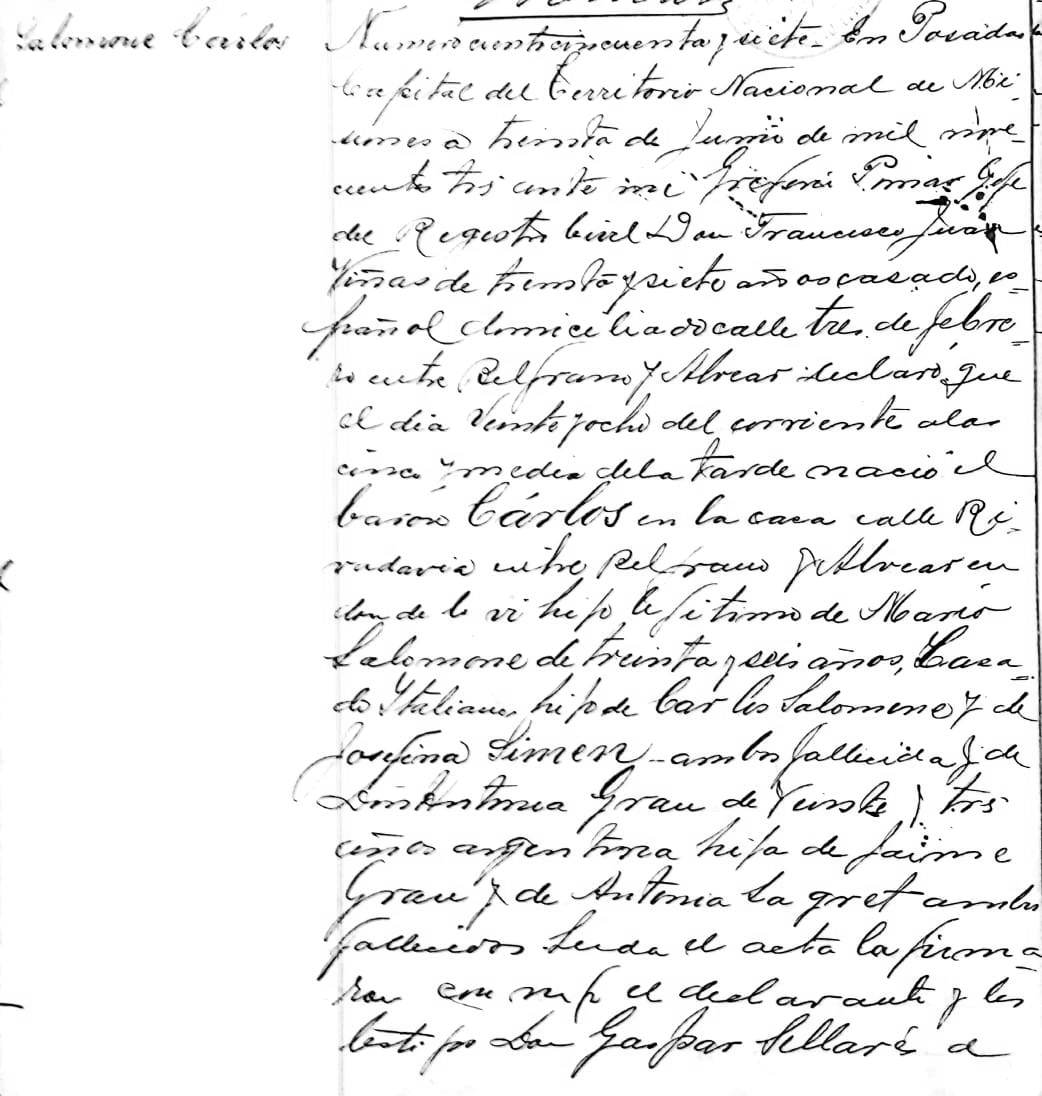 Salomone Cárlos
Numero ciento cincuenta y siete - En Posadas
Capital del Territorio Nacional de Mi-
siones a treinta de Junio de mil nove-
cientos tres ante mi Gefe
del Registro Civil Don Francisco Juan
Viñas de treinta y siete años casado, es-
pañol domiciliado calle tres de febre-
ro entre Belgrano y Alvear declaró que
el dia veinte y ocho del corriente a las
cinco y media de la tarde nació el
baron Cárlos en la casa calle Ri-
vadavia entre Belgrano y Alvear en
donde le vi hijo lejitimo de Mario
Salomone de treinta y seis años, Casa-
do Italiano, hijo de Carlos Salomone y de
Josefina Simen - ambos fallecida y de
Doña Antonia Grau de Veinte y tres
años argentina hija de Jaime
Grau y de Antonia Sagret ambos
fallecidos Leida el acta la firma-
ron con migo el declarante y los
testigos Don Gaspar Sellarés a